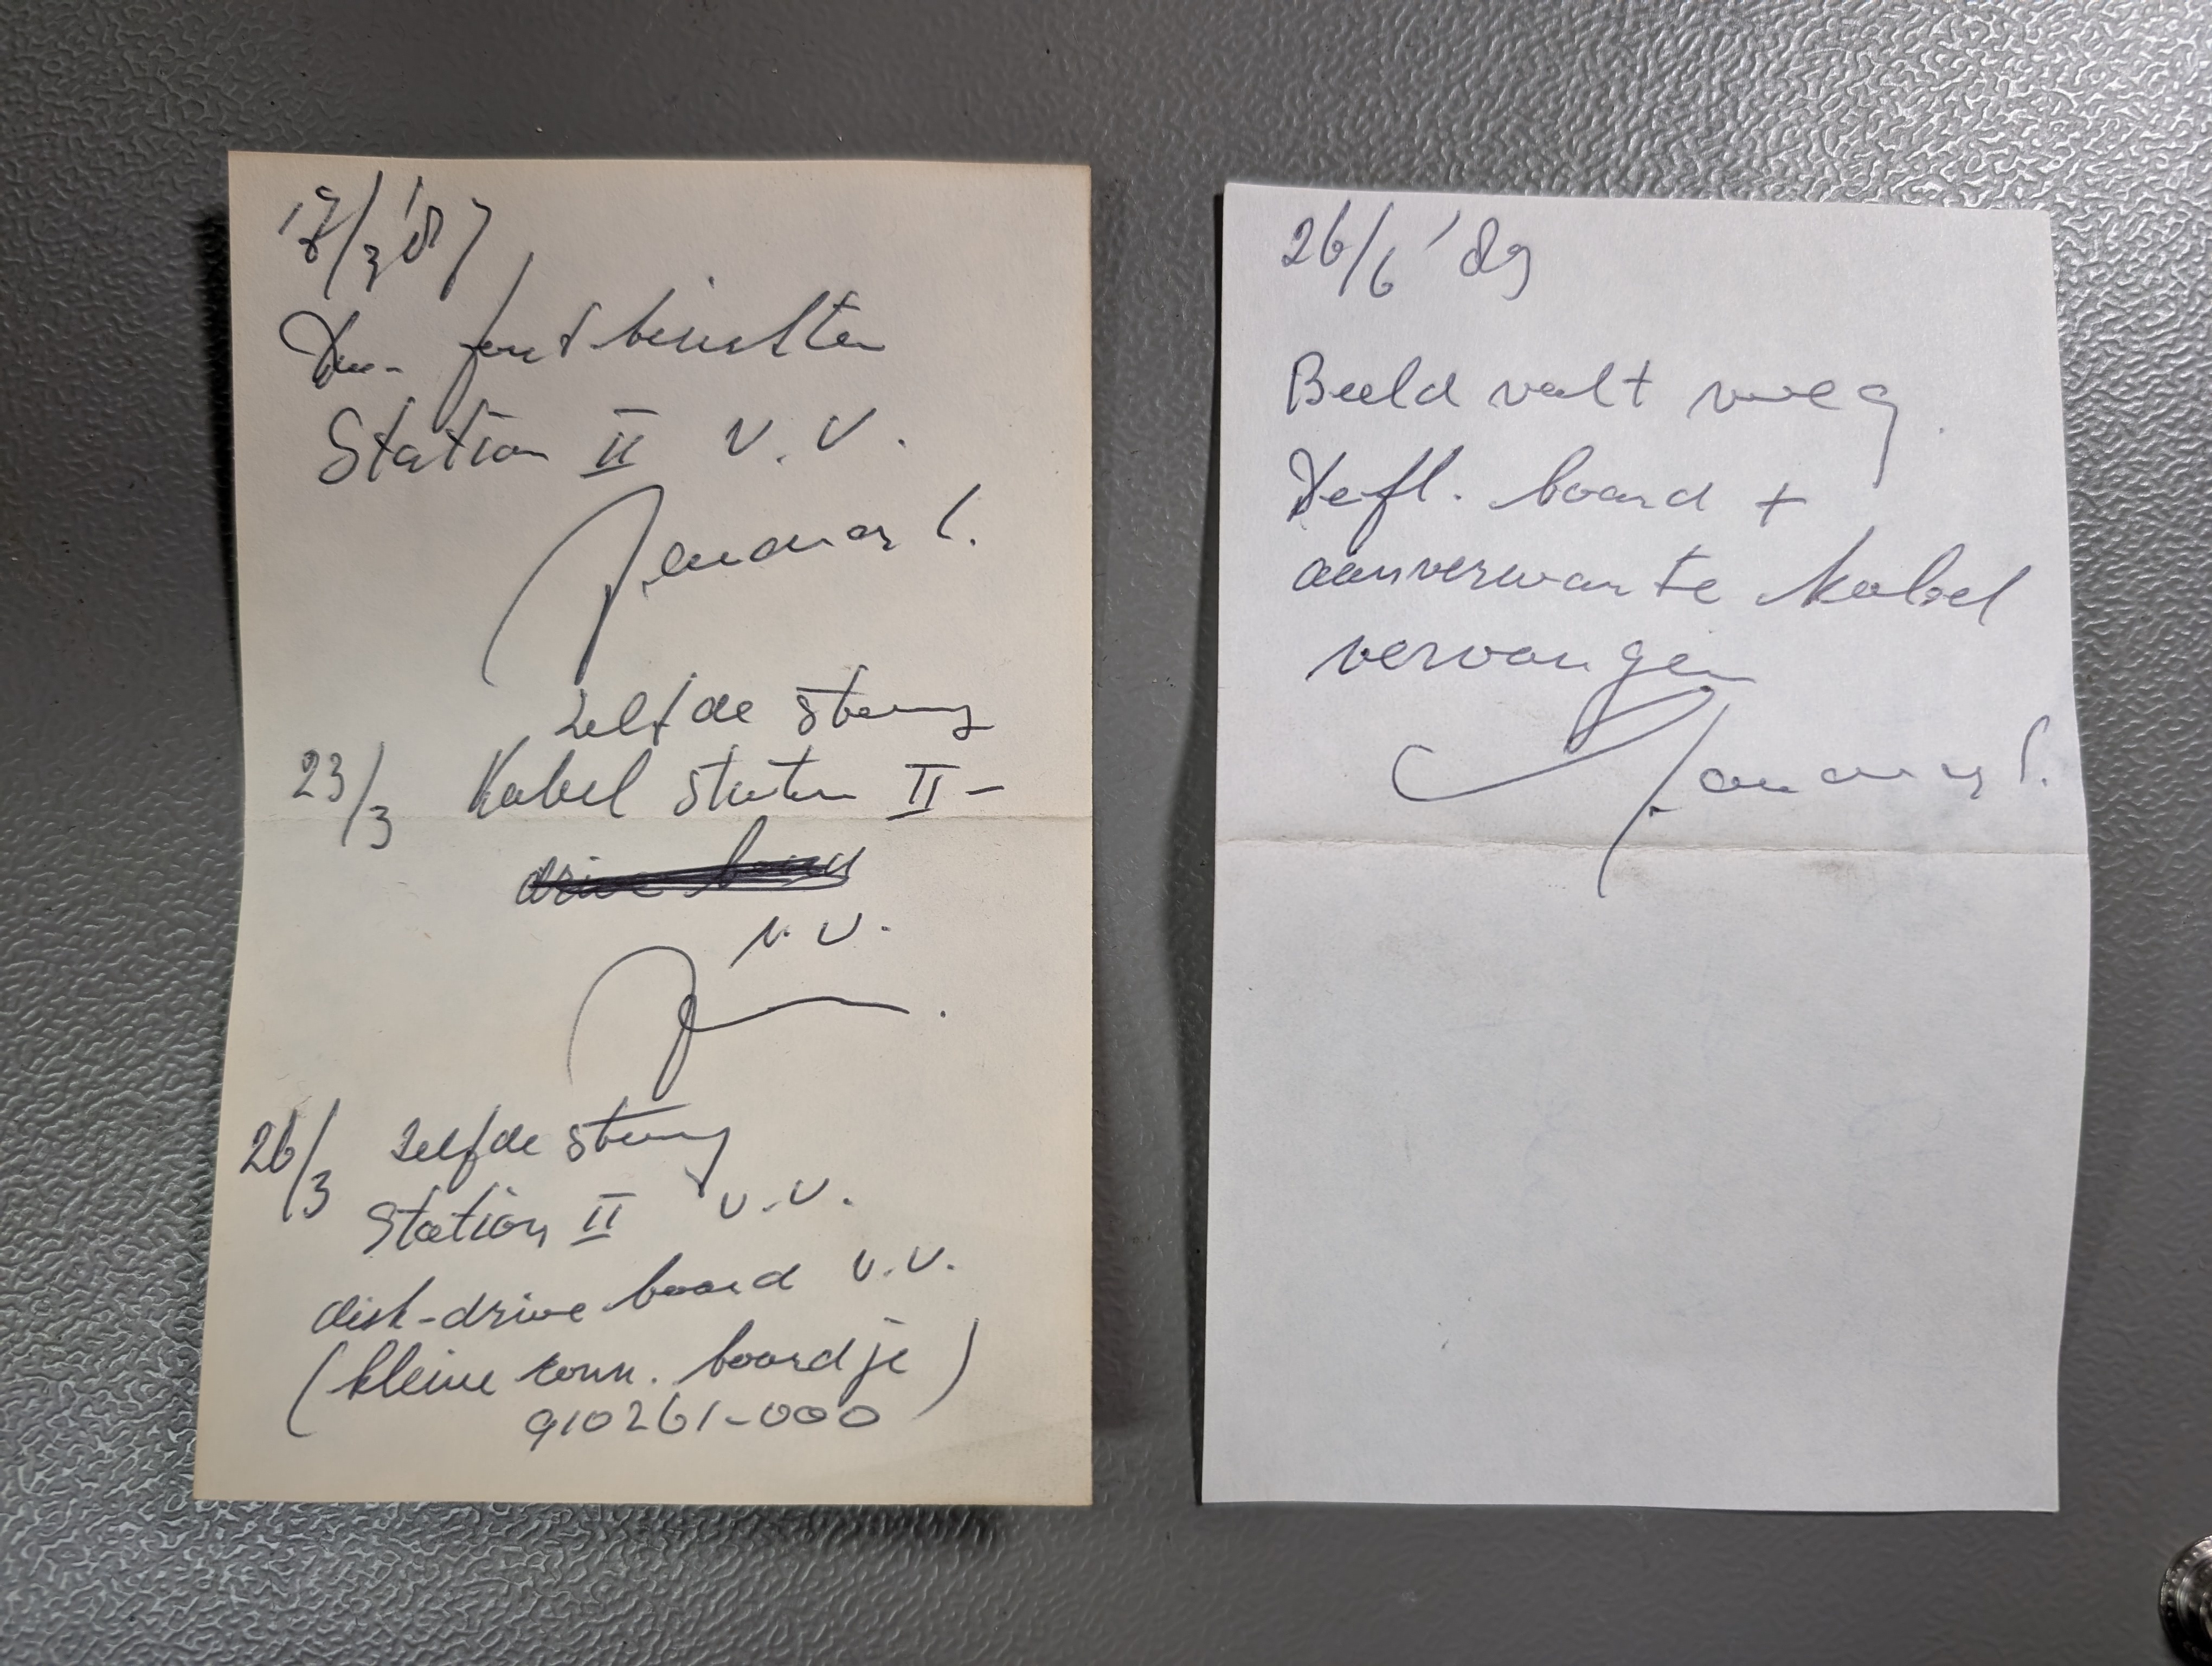 17/3 '87
Div. foutberichten
Station II v.v.
zelfde storing
23/3 Kabel station II -
drive board
v.v.
26/3 zelfde storing
Station II v.v.
disk-drive board v.v.
(kleine conn. boardje)
910261-000
26/6 '89
Beeld valt weg.
Defl. board +
aanverwante kabel
vervangen